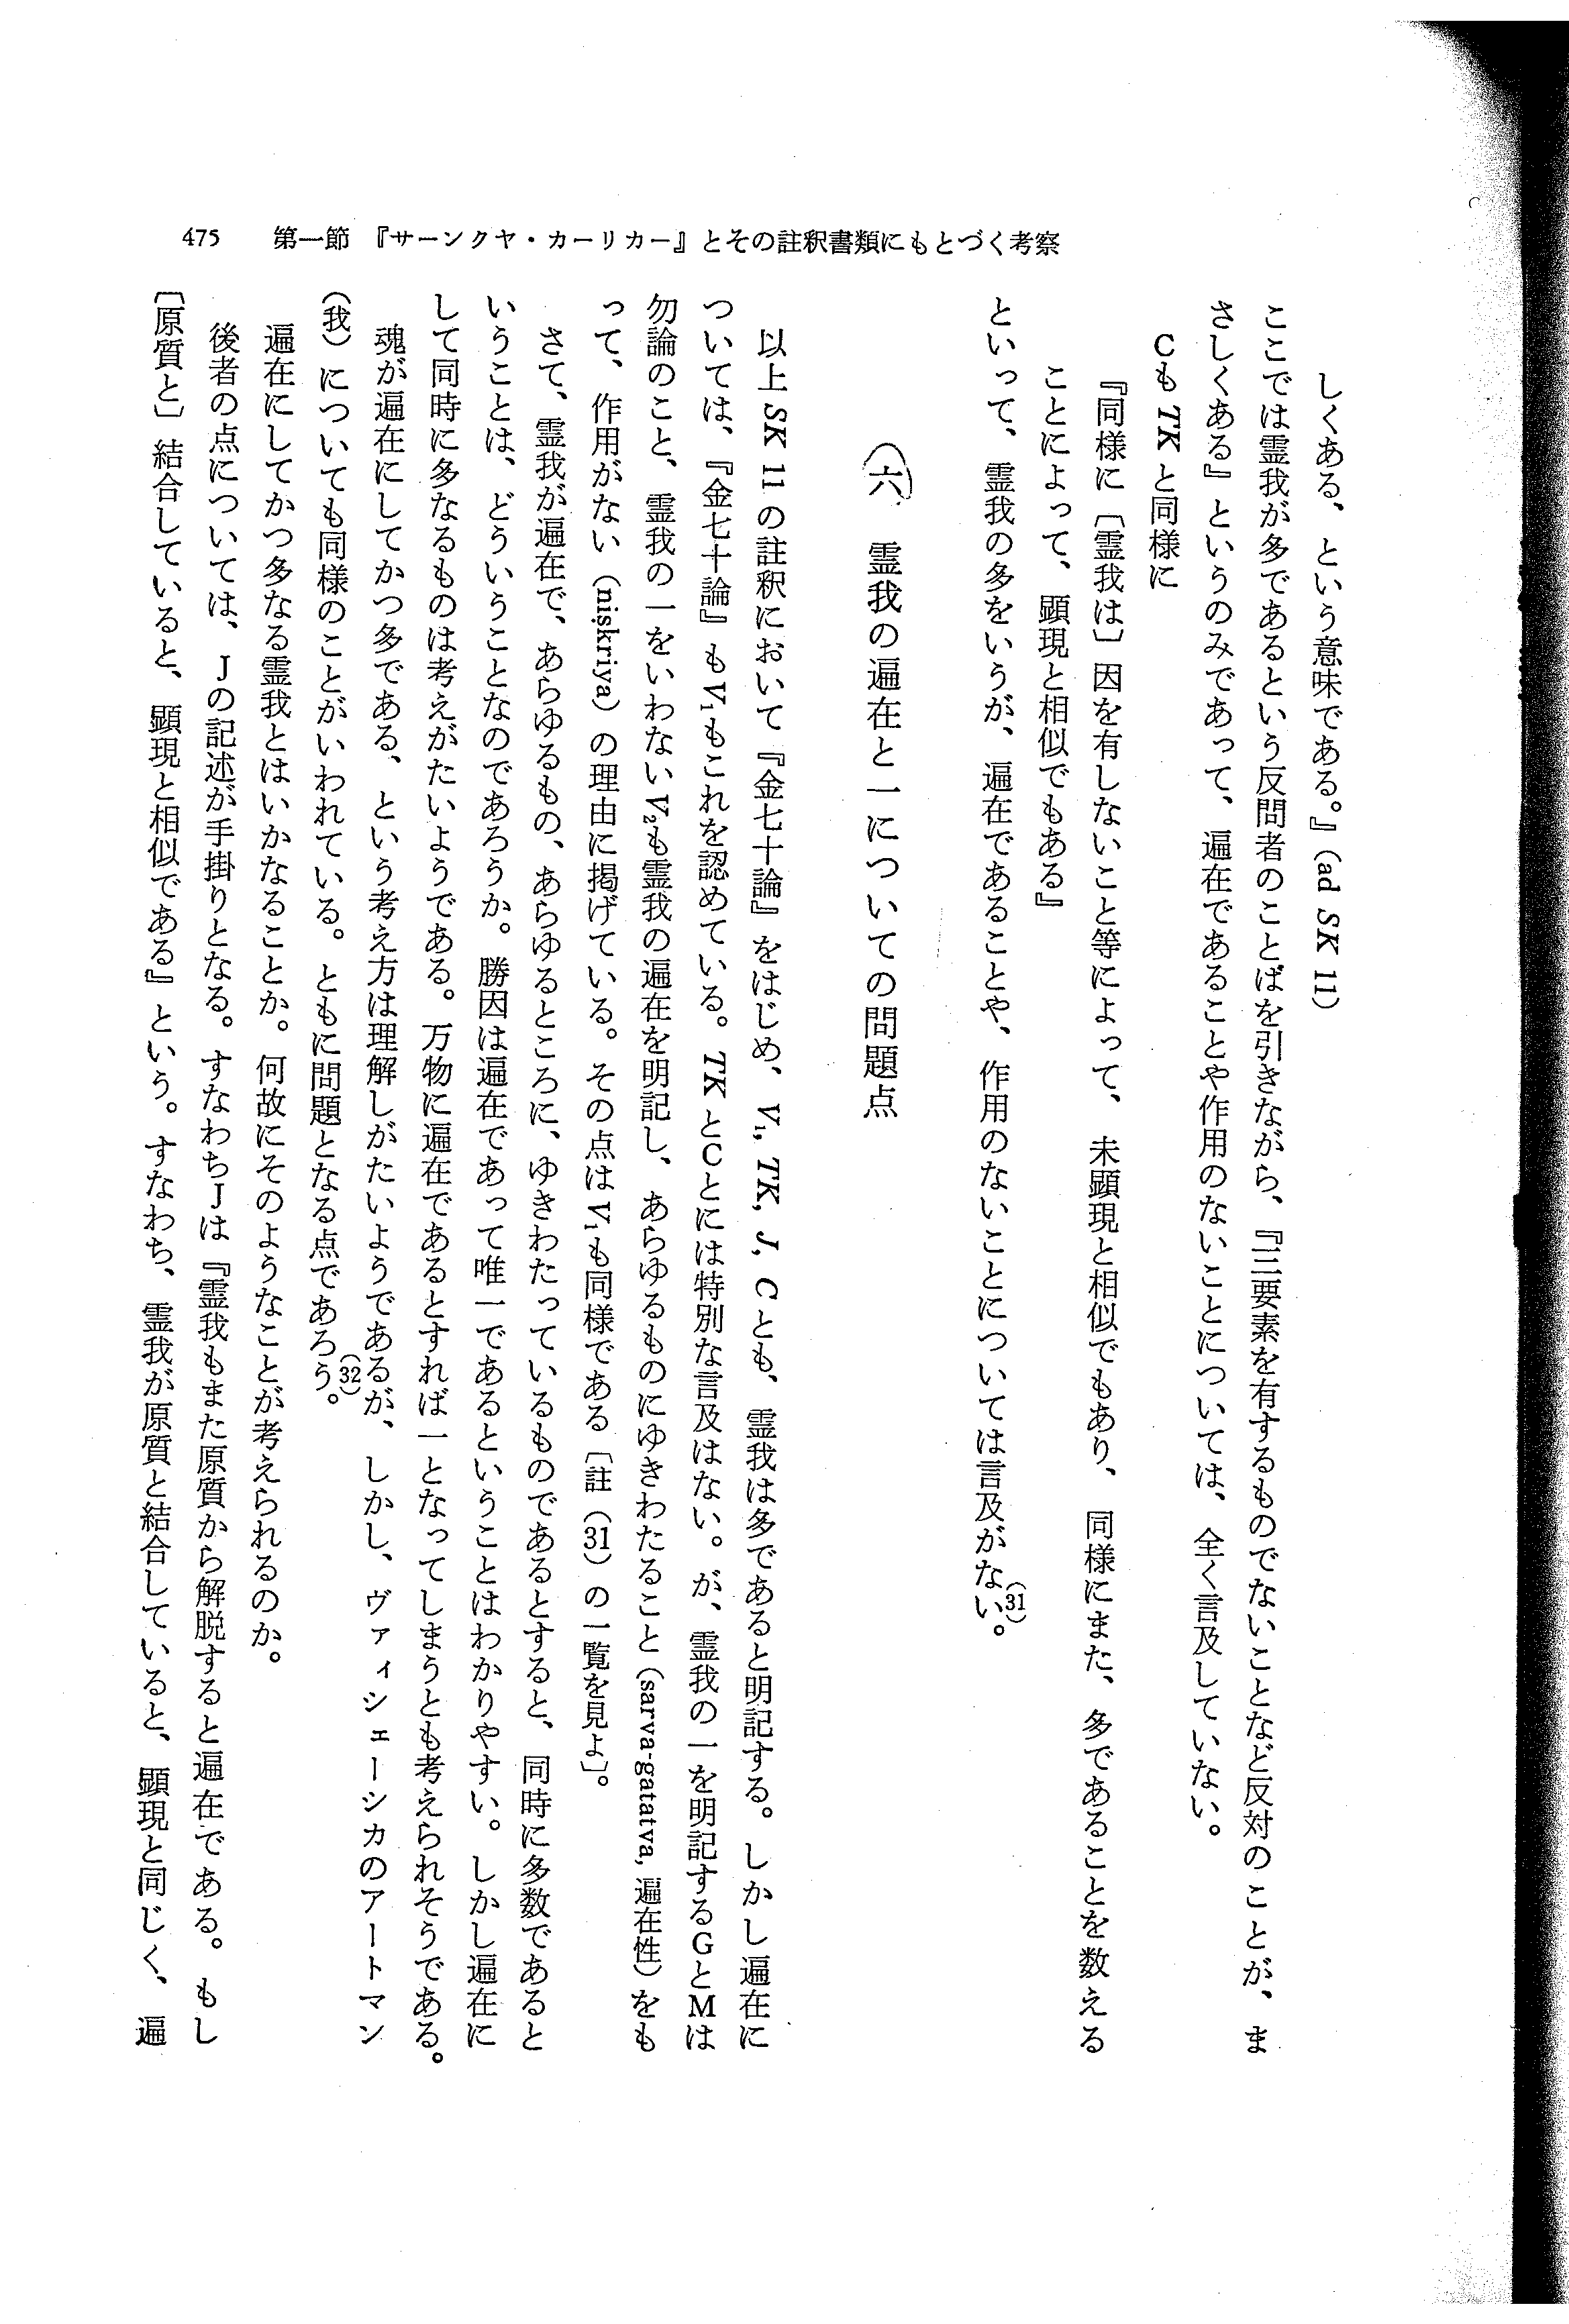 475　第一節　『サーンクヤ・カーリカー』とその註釈書類にもとづく考察
しくある、という意味である。』(ad SK 11)
ここでは霊我が多であるという反問者のことばを引きながら、『三要素を有するものでないことなど反対のことが、ま
さしくある』というのみであって、遍在であることや作用のないことについては、全く言及していない。
CもTKと同様に
『同様に〔霊我は〕因を有しないこと等によって、未顕現と相似でもあり、同様にまた、多であることを数える
ことによって、顕現と相似でもある』
といって、霊我の多をいうが、遍在であることや、作用のないことについては言及がない。(31)
(六)　霊我の遍在と一についての問題点
以上SK 11の註釈において『金七十論』をはじめ、V₁, TK, J, Cとも、霊我は多であると明記する。しかし遍在に
ついては、『金七十論』もV₁もこれを認めている。TKとCとには特別な言及はない。が、霊我の一を明記するGとMは
勿論のこと、霊我の一をいわないV₂も霊我の遍在を明記し、あらゆるものにゆきわたること(sarva-gatatva, 遍在性)をも
って、作用がない(niṣkriya)の理由に掲げている。その点はV₁も同様である〔註(31)の一覧を見よ〕。
さて、霊我が遍在で、あらゆるもの、あらゆるところに、ゆきわたっているものであるとすると、同時に多数であると
いうことは、どういうことなのであろうか。勝因は遍在であって唯一であるということはわかりやすい。しかし遍在に
して同時に多なるものは考えがたいようである。万物に遍在であるとすれば一となってしまうとも考えられそうである。
魂が遍在にしてかつ多である、という考え方は理解しがたいようであるが、しかし、ヴァイシェーシカのアートマン
(我)についても同様のことがいわれている。ともに問題となる点であろう。(32)
遍在にしてかつ多なる霊我とはいかなることか。何故にそのようなことが考えられるのか。
後者の点については、Jの記述が手掛りとなる。すなわちJは『霊我もまた原質から解脱すると遍在である。もし
〔原質と〕結合していると、顕現と相似である』という。すなわち、霊我が原質と結合していると、顕現と同じく、遍